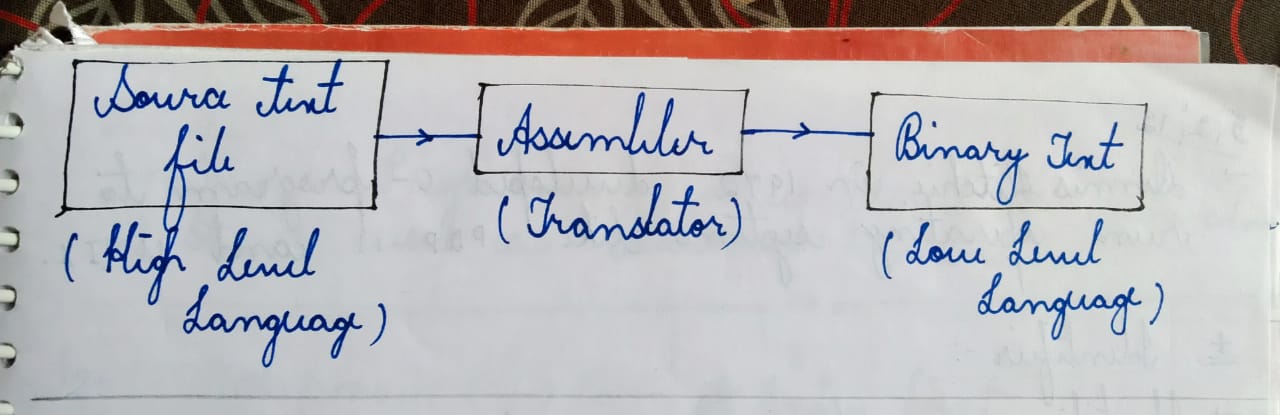 Source text
file
(High Level
Language)
Assembler
(Translator)
Binary Text
(Low Level
Language)